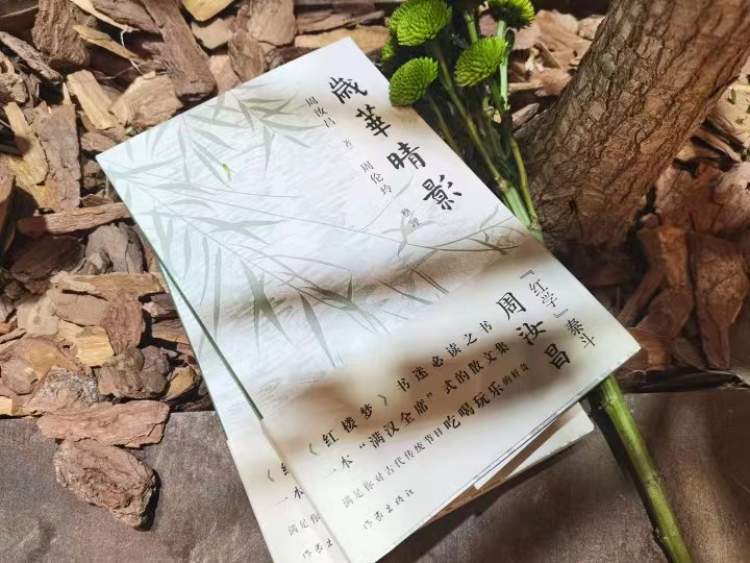 歲華晴影
周汝昌 著 周伦玲 整理
『红学』泰斗
周汝昌
《红楼梦》书迷必读之书
一本“满汉全席”式的散文集
满足你对古代传统节日吃喝玩乐的好奇
作家出版社
一本
满足你
作家出版社